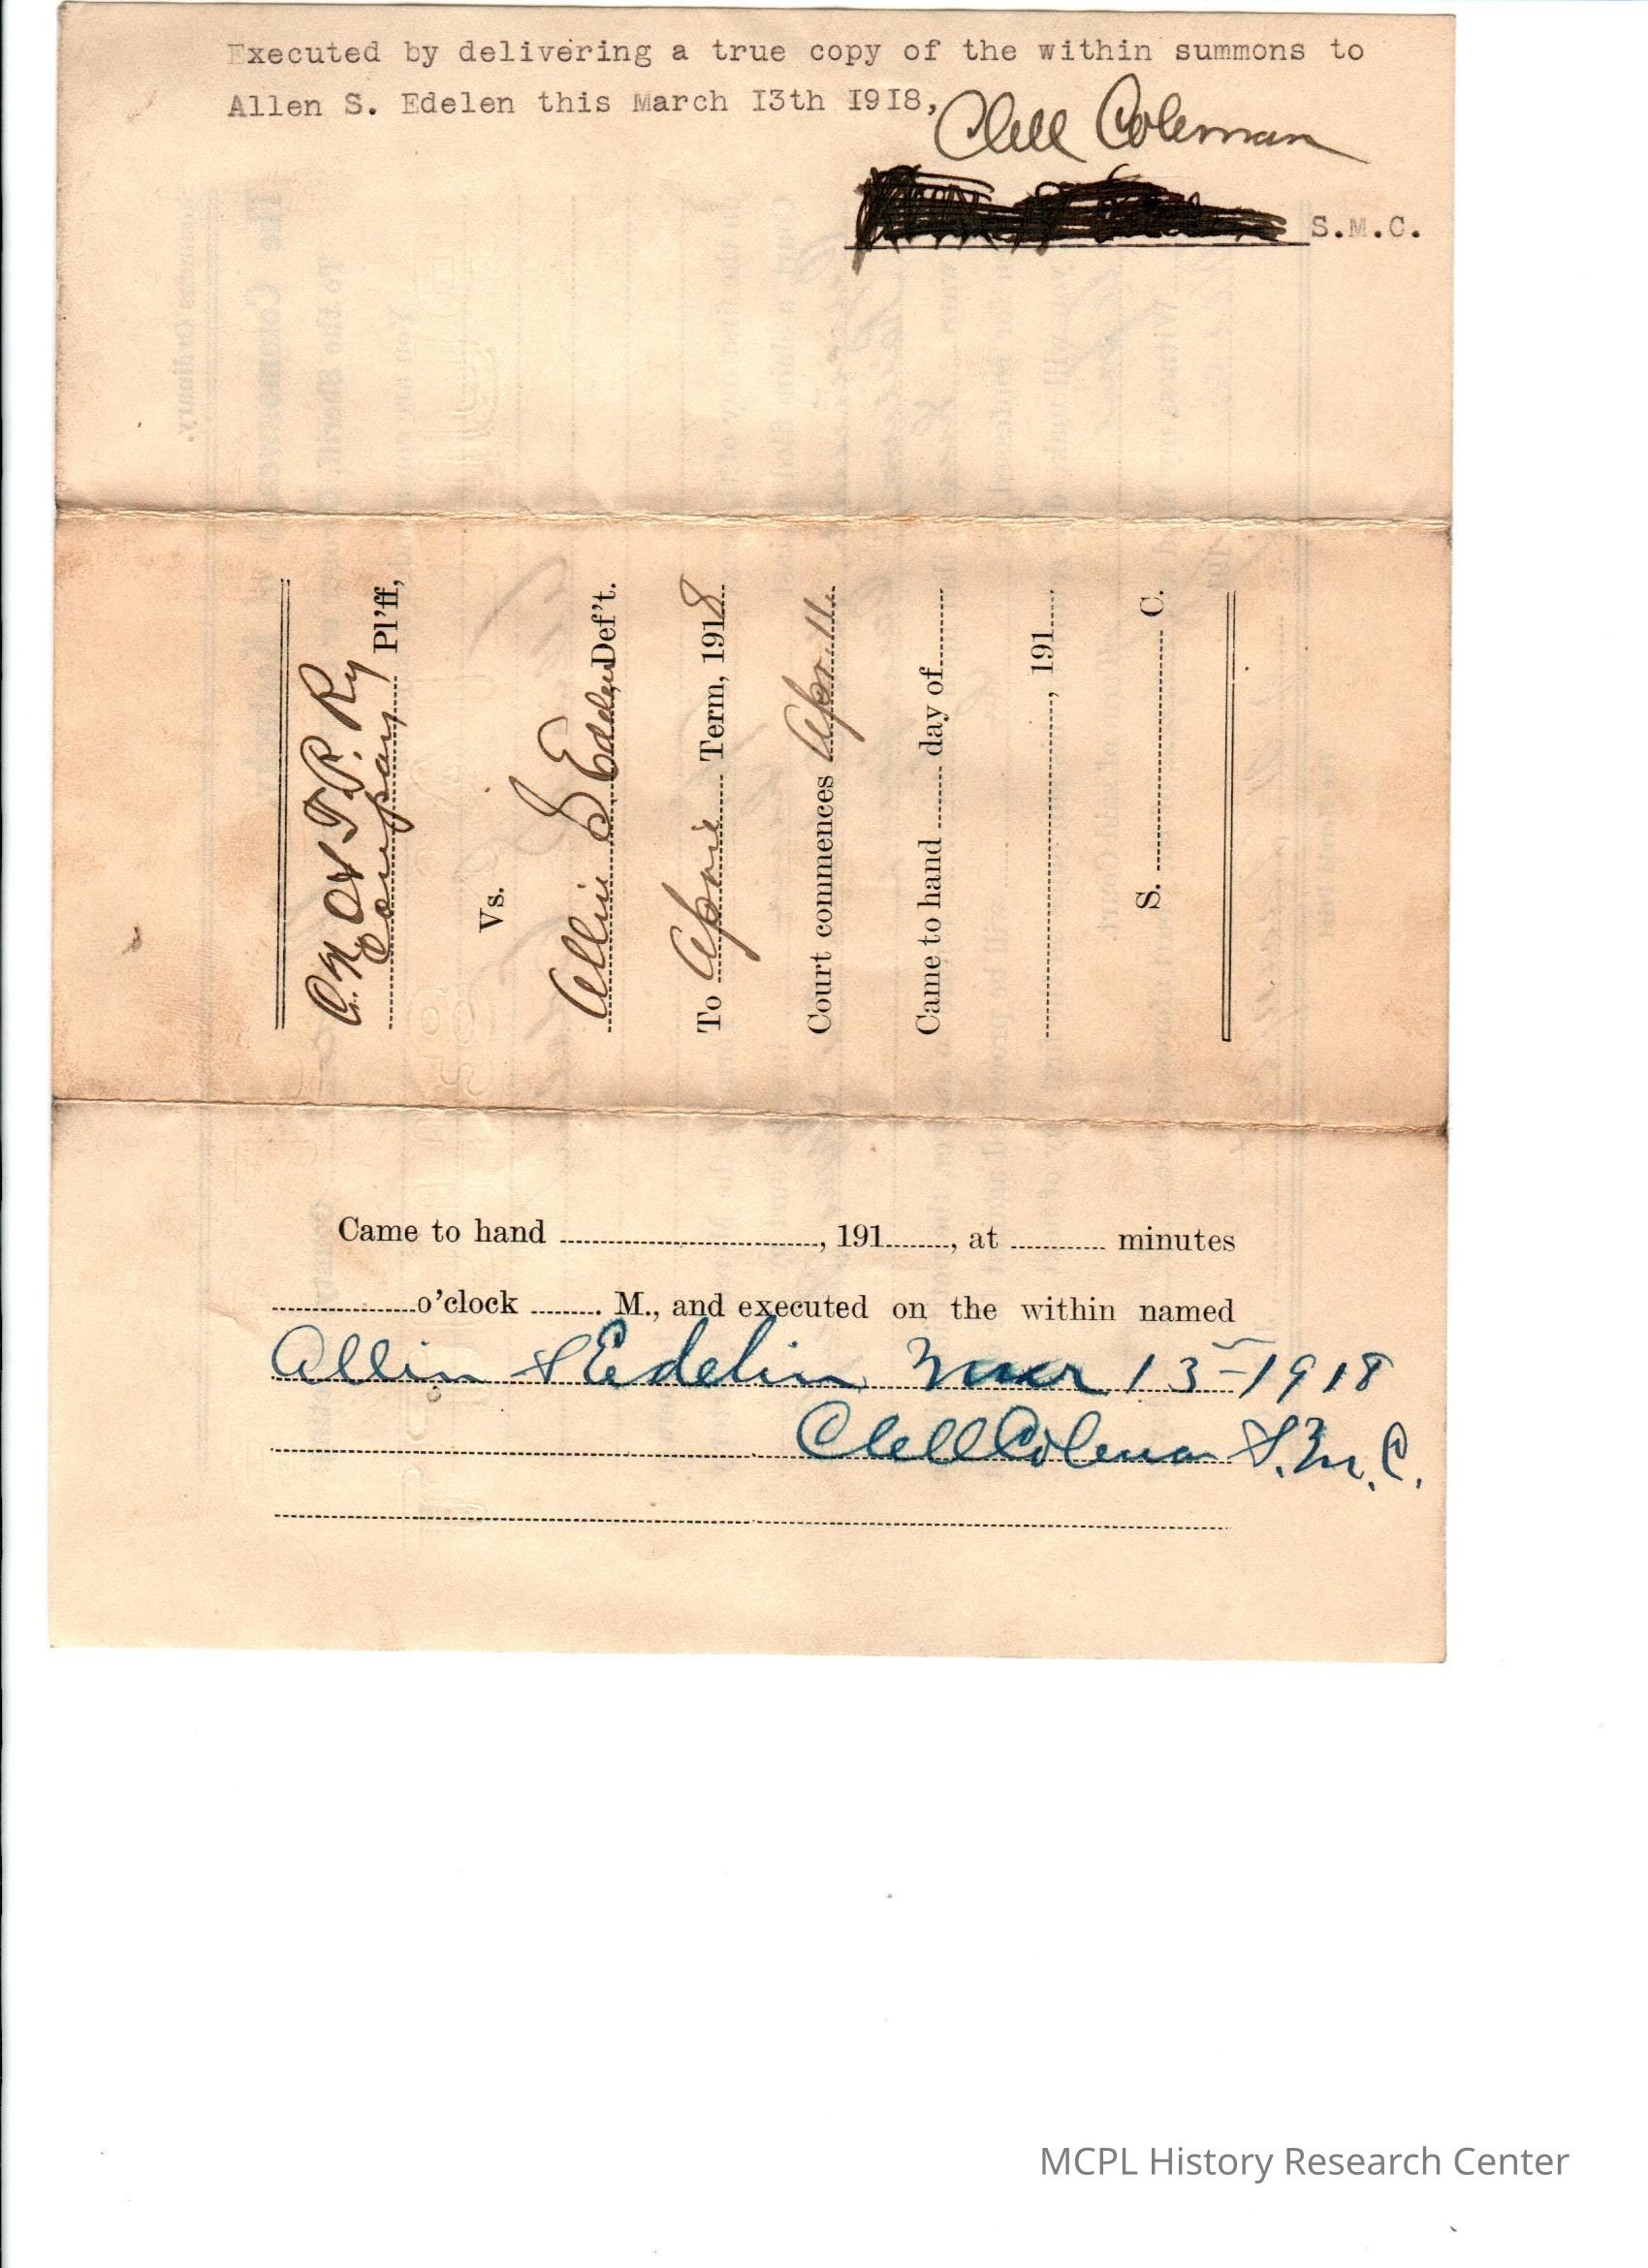 Executed by delivering a true copy of the within summons to
Allen S. Edelen this March 13th 1918,
Clell Coleman
S.M.C.
C. N. O. & T. P. Ry
Company Pl'ff,
Vs.
Allin S Edelen Def't.
To April Term, 1918
Court commences Apr. 11.
Came to hand day of
, 191
S. C.
Came to hand , 191 , at minutes
o'clock M., and executed on the within named
Allin S Edelin Mar 13-1918
Clell Coleman S.M.C.
MCPL History Research Center